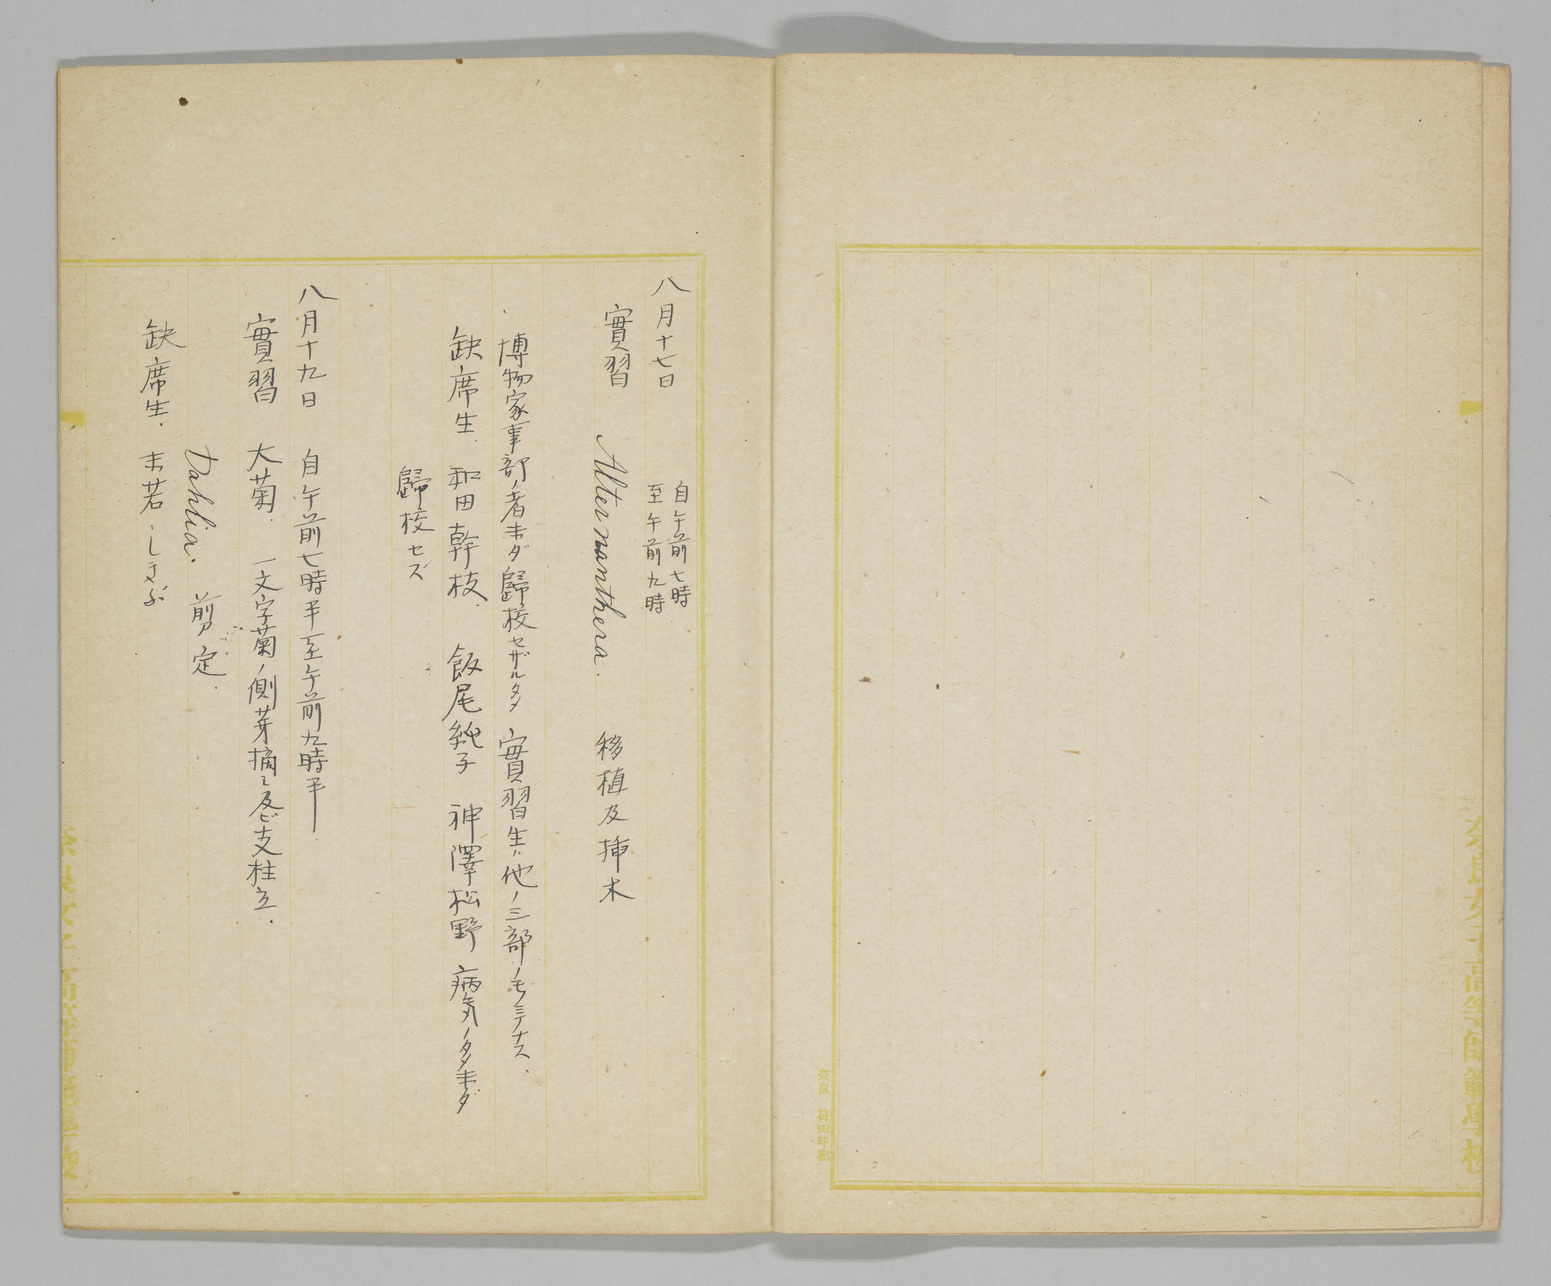 奈良女子高等師範學校
八月十七日
自午前七時
至午前九時
實習 Alternanthera. 移植及挿木
博物家事部ノ者未ダ歸校セザルタメ 實習生ハ他ノ三部ノモノミナス.
缺席生 和田幹枝. 飯尾純子 神澤松野 病気ノタメ未ダ
歸校セズ
八月十九日 自午前七時半至午前九時半.
實習 大菊. 一文字菊ノ側芽摘ミ及ビ支柱立.
Dahlia. 剪定.
缺席生.
奈良女子高等師範學校